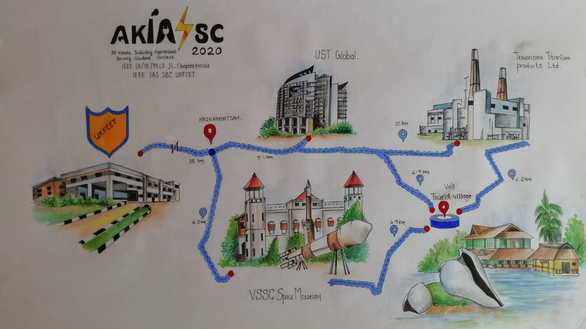 AKIA SC
2020
All Kerala Industry Applications
Society Student Conclave
IEEE IA/IE/PELS Jt. Chapter Kerala
IEEE IAS SBC UKFCET
UST Global
Travancore Titanium
products Ltd.
UKFCET
KAZHAKKOOTTAM
5.1 km
Veli
Tourist village
VSSC Space Museum